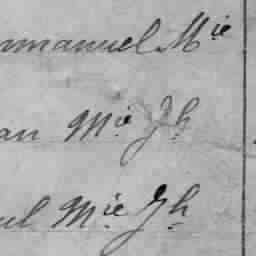 mmanuel Mie
an Mie Jh
ul Mie Jh